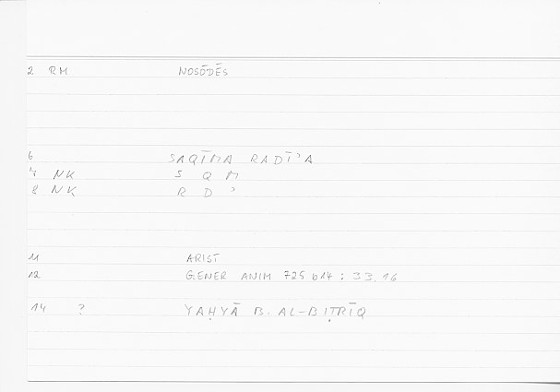 2 RM NOSŌDĒS
6 SAQĪMA RADĪʾA
4 NK S Q M
8 NK R D ʾ
11 ARIST
12 GENER ANIM 725 b14 : 33,16
14 ? YAḤYĀ B. AL-BIṬRĪQ